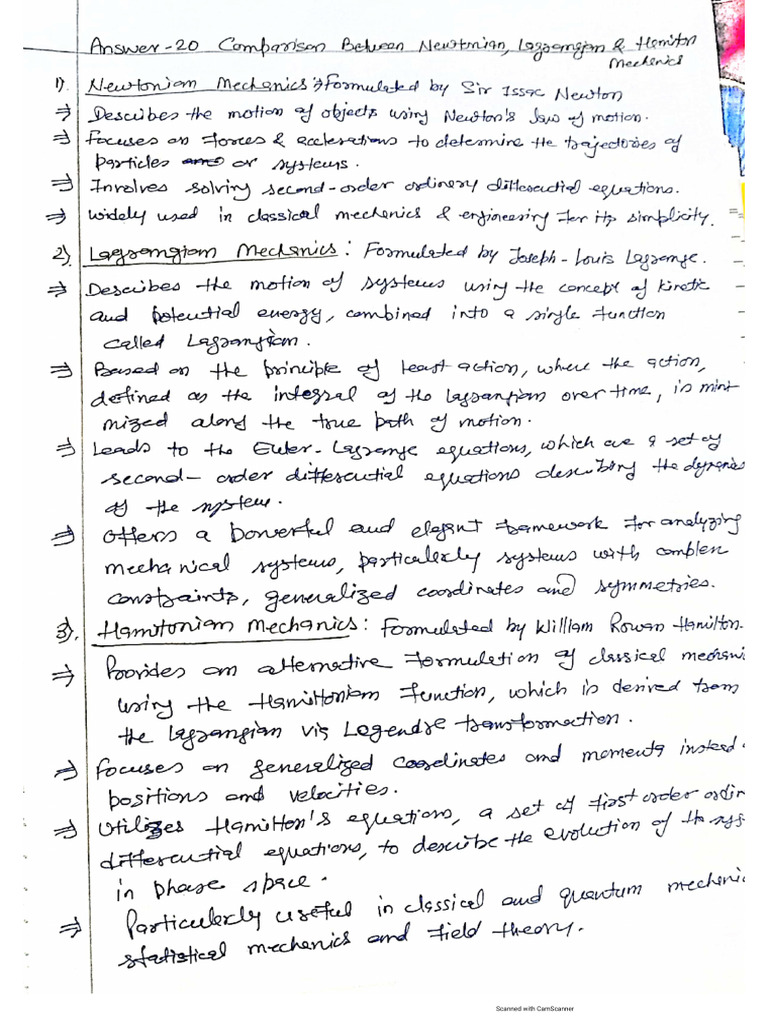 Answer-20 Comparison Between Newtonian, Lagrangian & Hamilton
Mechanics
1) Newtonian Mechanics :⇒ Formulated by Sir Issac Newton
⇒ Describes the motion of objects using Newton's law of motion.
⇒ Focuses on Forces & accelerations to determine the trajectories of
particles or systems.
⇒ Involves solving second-order ordinary differential equations.
⇒ widely used in classical mechanics & engineering for its simplicity.
2). Lagrangian Mechanics : Formulated by Joseph-Louis Lagrange.
⇒ Describes the motion of systems using the concept of kinetic
and potential energy, combined into a single function
called Lagrangian.
⇒ Based on the principle of least action, where the action,
defined as the integral of the lagrangian over time, is mini
mized along the true path of motion.
⇒ Leads to the Euler-Lagrange equations, which are a set of
second-order differential equations describing the dynamics
of the system.
⇒ Offers a powerful and elegant framework for analyzing
mechanical systems, particulerly systems with complex
constraints, generalized coordinates and symmetries.
3). Hamiltonian Mechanics : Formulated by William Rowan Hamilton.
⇒ Provides an alternative formulation of classical mechani
using the Hamiltonian function, which is derived from
the lagrangian via Legendre transformation.
⇒ Focuses on generalized coordinates and momenta instead
positions and velocities.
⇒ Utilizes Hamilton's equations, a set of first order ordin
differential equations, to describe the evolution of the sys
in phase space.
⇒ Particulerly useful in classical and quantum mechani
statistical mechanics and field theory.
Scanned with CamScanner